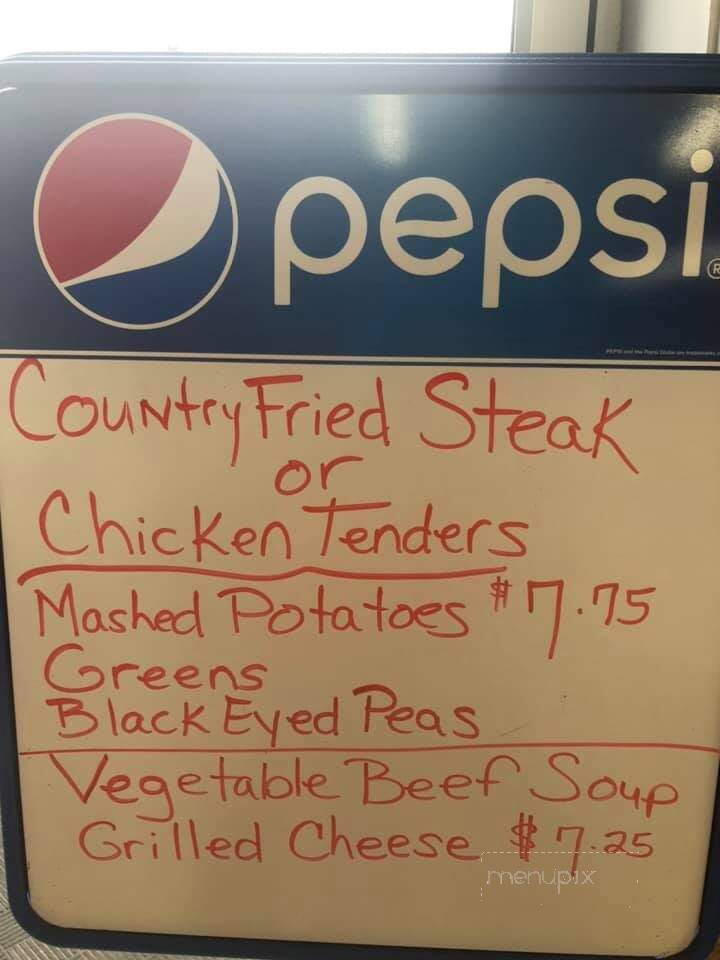 pepsi
®
CountryFried Steak
or
Chicken Tenders
Mashed Potatoes $7.75
Greens
Black Eyed Peas
Vegetable Beef Soup
Grilled Cheese $7.25
menupix